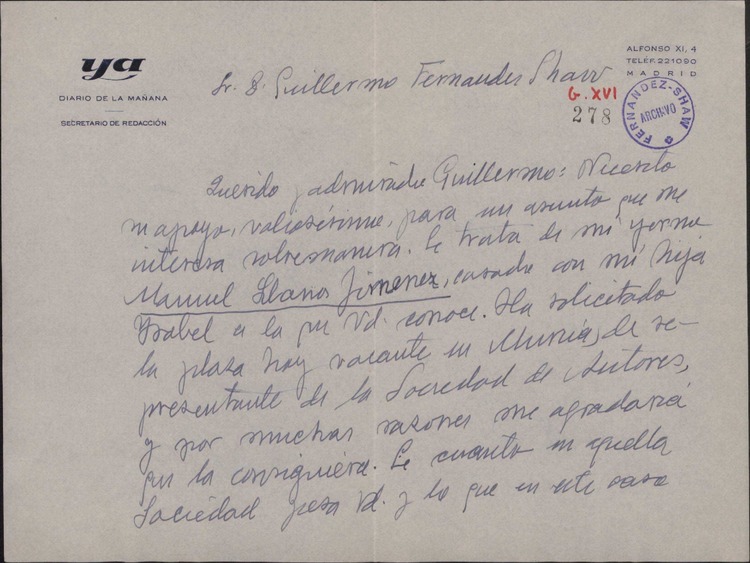 ya
DIARIO DE LA MAÑANA
SECRETARIO DE REDACCIÓN
ALFONSO XI, 4
TELÉF. 221090
MADRID
Sr. D. Guillermo Fernandez Shaw
G. XVI
278
FERNANDEZ-SHAW
ARCHIVO
Querido y admirado Guillermo: Necesito
su apoyo, valiosísimo, para un asunto que me
interesa sobremanera. Se trata de mi yerno
Manuel Llanos Jimenez, casado con mi hija
Ysabel a la que Vd. conoce. Ha solicitado
la plaza hoy vacante en Murcia, de re-
presentante de la Sociedad de Autores,
y por muchas razones me agradaría
que la consiguiera. Se cuanto en aquella
Sociedad pesa Vd. y lo que en este caso